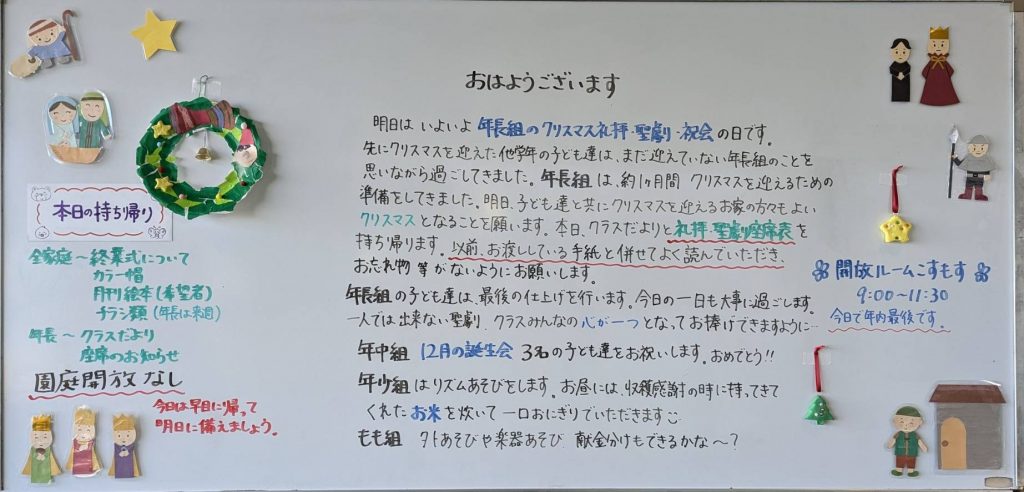 おはようございます
明日は いよいよ 年長組のクリスマス礼拝・聖劇・祝会 の日です。
先にクリスマスを迎えた他学年の子ども達は、まだ迎えていない年長組のことを
思いながら過ごしてきました。年長組 は、約1ヶ月間 クリスマスを迎えるための
準備をしてきました。明日、子ども達と共にクリスマスを迎えるお家の方々もよい
クリスマス となることを願います。本日、クラスだよりと 礼拝・聖劇座席表 を
持ち帰ります。以前、お渡ししている 手紙と併せてよく読んでいただき、
お忘れ物 等 がないようにお願いします。
年長組 の子ども達は、最後の仕上げを行います。今日の一日も大事に過ごします。
一人では出来ない聖劇、クラスみんなの 心が一つ となってお捧げできますように…
年中組 12月の誕生会 3名の子ども達をお祝いします。おめでとう!!
年少組 はリズムあそびをします。お昼には、収穫感謝の時に持ってきて
くれた お米 を炊いて 一口おにぎりでいただきます
もも組 外あそびや楽器あそび 献金分けもできるかな〜?
本日の持ち帰り
全家庭〜終業式について
カラー帽
月刊絵本(希望者)
チラシ類(年長は来週)
年長〜クラスだより
座席のお知らせ
園庭開放なし
今日は早目に帰って
明日に備えましょう。
開放ルームこすもす
9:00〜11:30
今日で年内最後です。